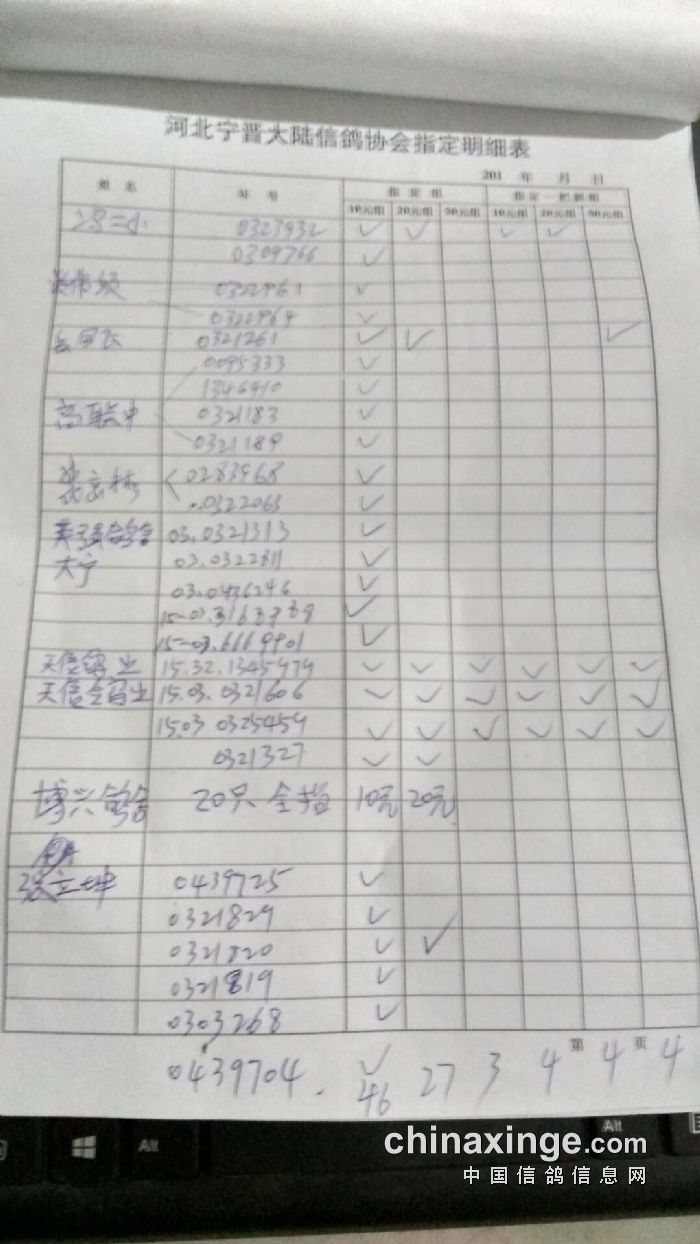 河北宁晋大陆信鸽协会指定明细表
201 年 月 日
姓 名 环 号 指 定 组 指 定 一 把 抓 组
10元组 20元组 50元组 10元组 20元组 50元组
0323932 ✓ ✓ ✓ ✓
0309766 ✓
0322961 ✓
0322964 ✓
0321261 ✓ ✓ ✓
0095333 ✓
1346410 ✓
高联中 0321183 ✓
0321189 ✓
0283968 ✓
0322063 ✓
英强鸽舍 03.0321313 ✓
大宁 03.0322811 ✓
03.0436246 ✓
✓
15-03.6669901 ✓
天信鸽业 15.32.1345979 ✓ ✓ ✓ ✓ ✓ ✓
天信鸽业 15.03.0321606 ✓ ✓ ✓ ✓ ✓ ✓
15.03 0325459 ✓ ✓ ✓ ✓ ✓ ✓
0321327 ✓ ✓
博兴鸽舍 20只 全指 10元 20元
张立坤 0439725 ✓
0321829 ✓
0321820 ✓ ✓
0321819 ✓
0303268 ✓
第 页
0439704. ✓
46 27 3 4 4 4
Alt
Alt
chinaxinge.com
中国信鸽信息网